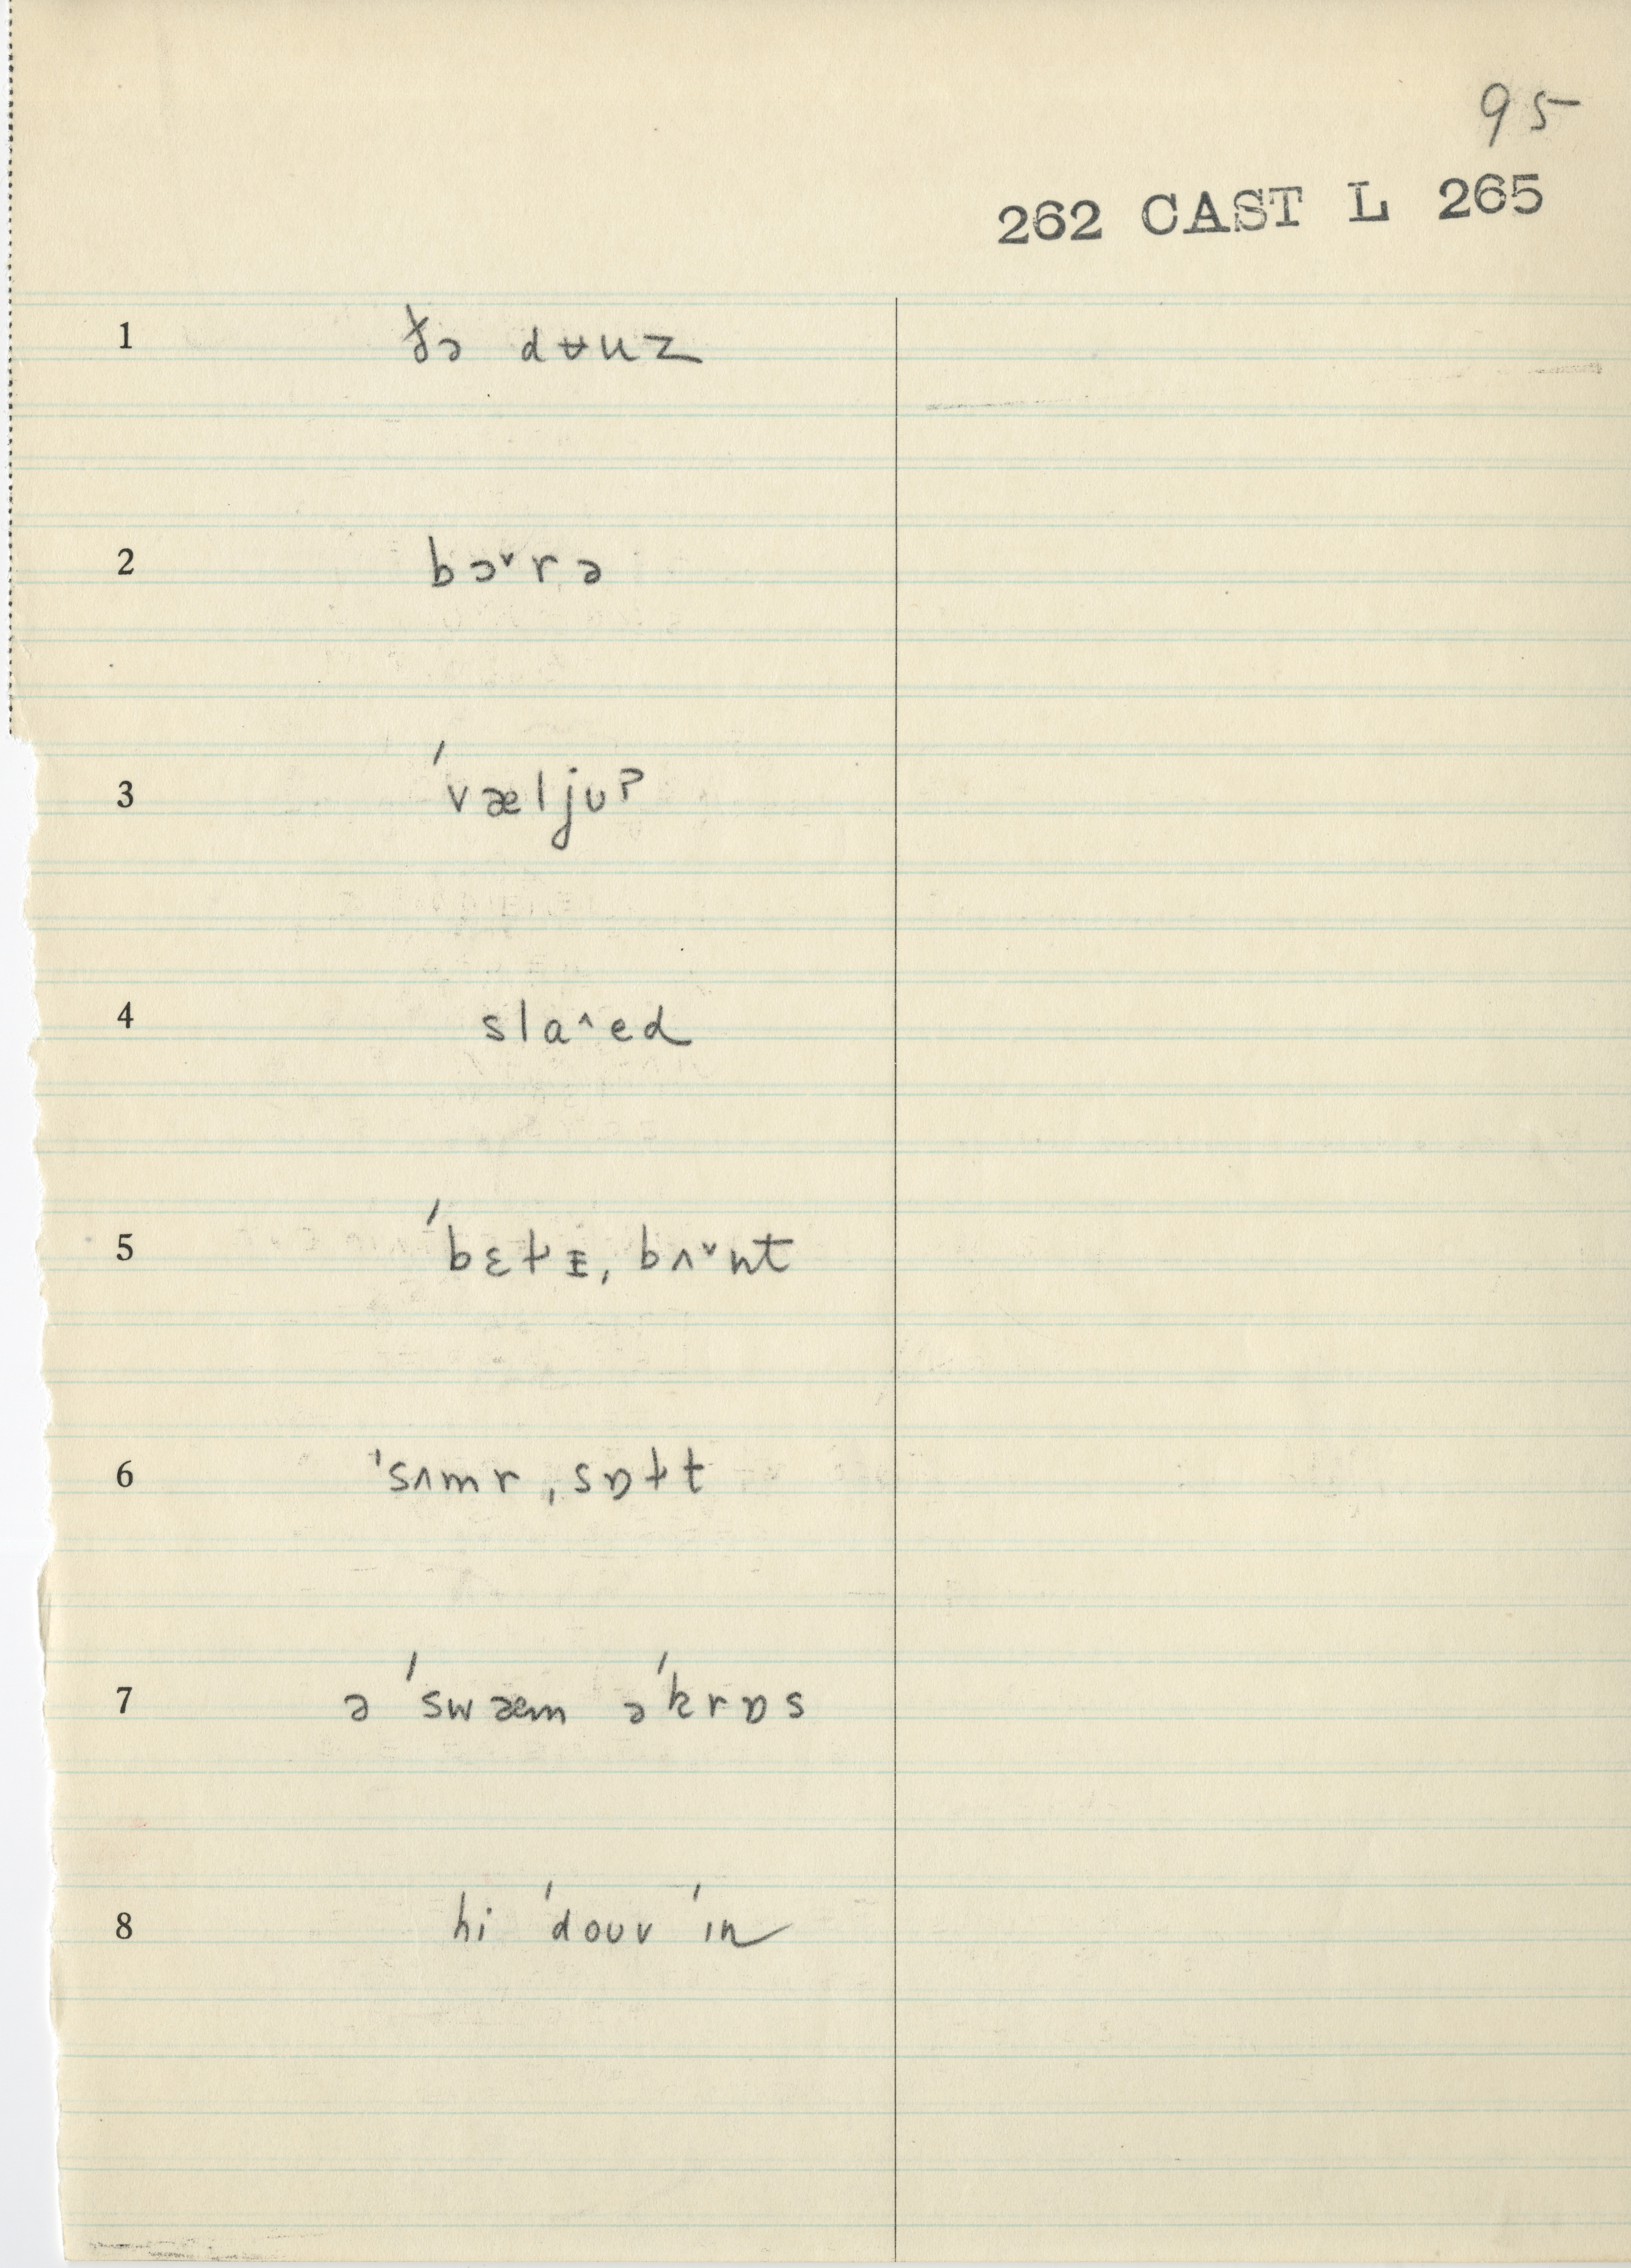 95
262 CAST L 265
1 ðə dʉuz
2 bɔ˅rə
3 ˈvæljuˀ
4 sla˄ed
5 ˈbɛɫᵻ, bʌ˅nt
6 ˈsʌmr ˌsɒɫt
7 ə ˈswæm əˈkrɒs
8 hi ˈdouv ˈɪn